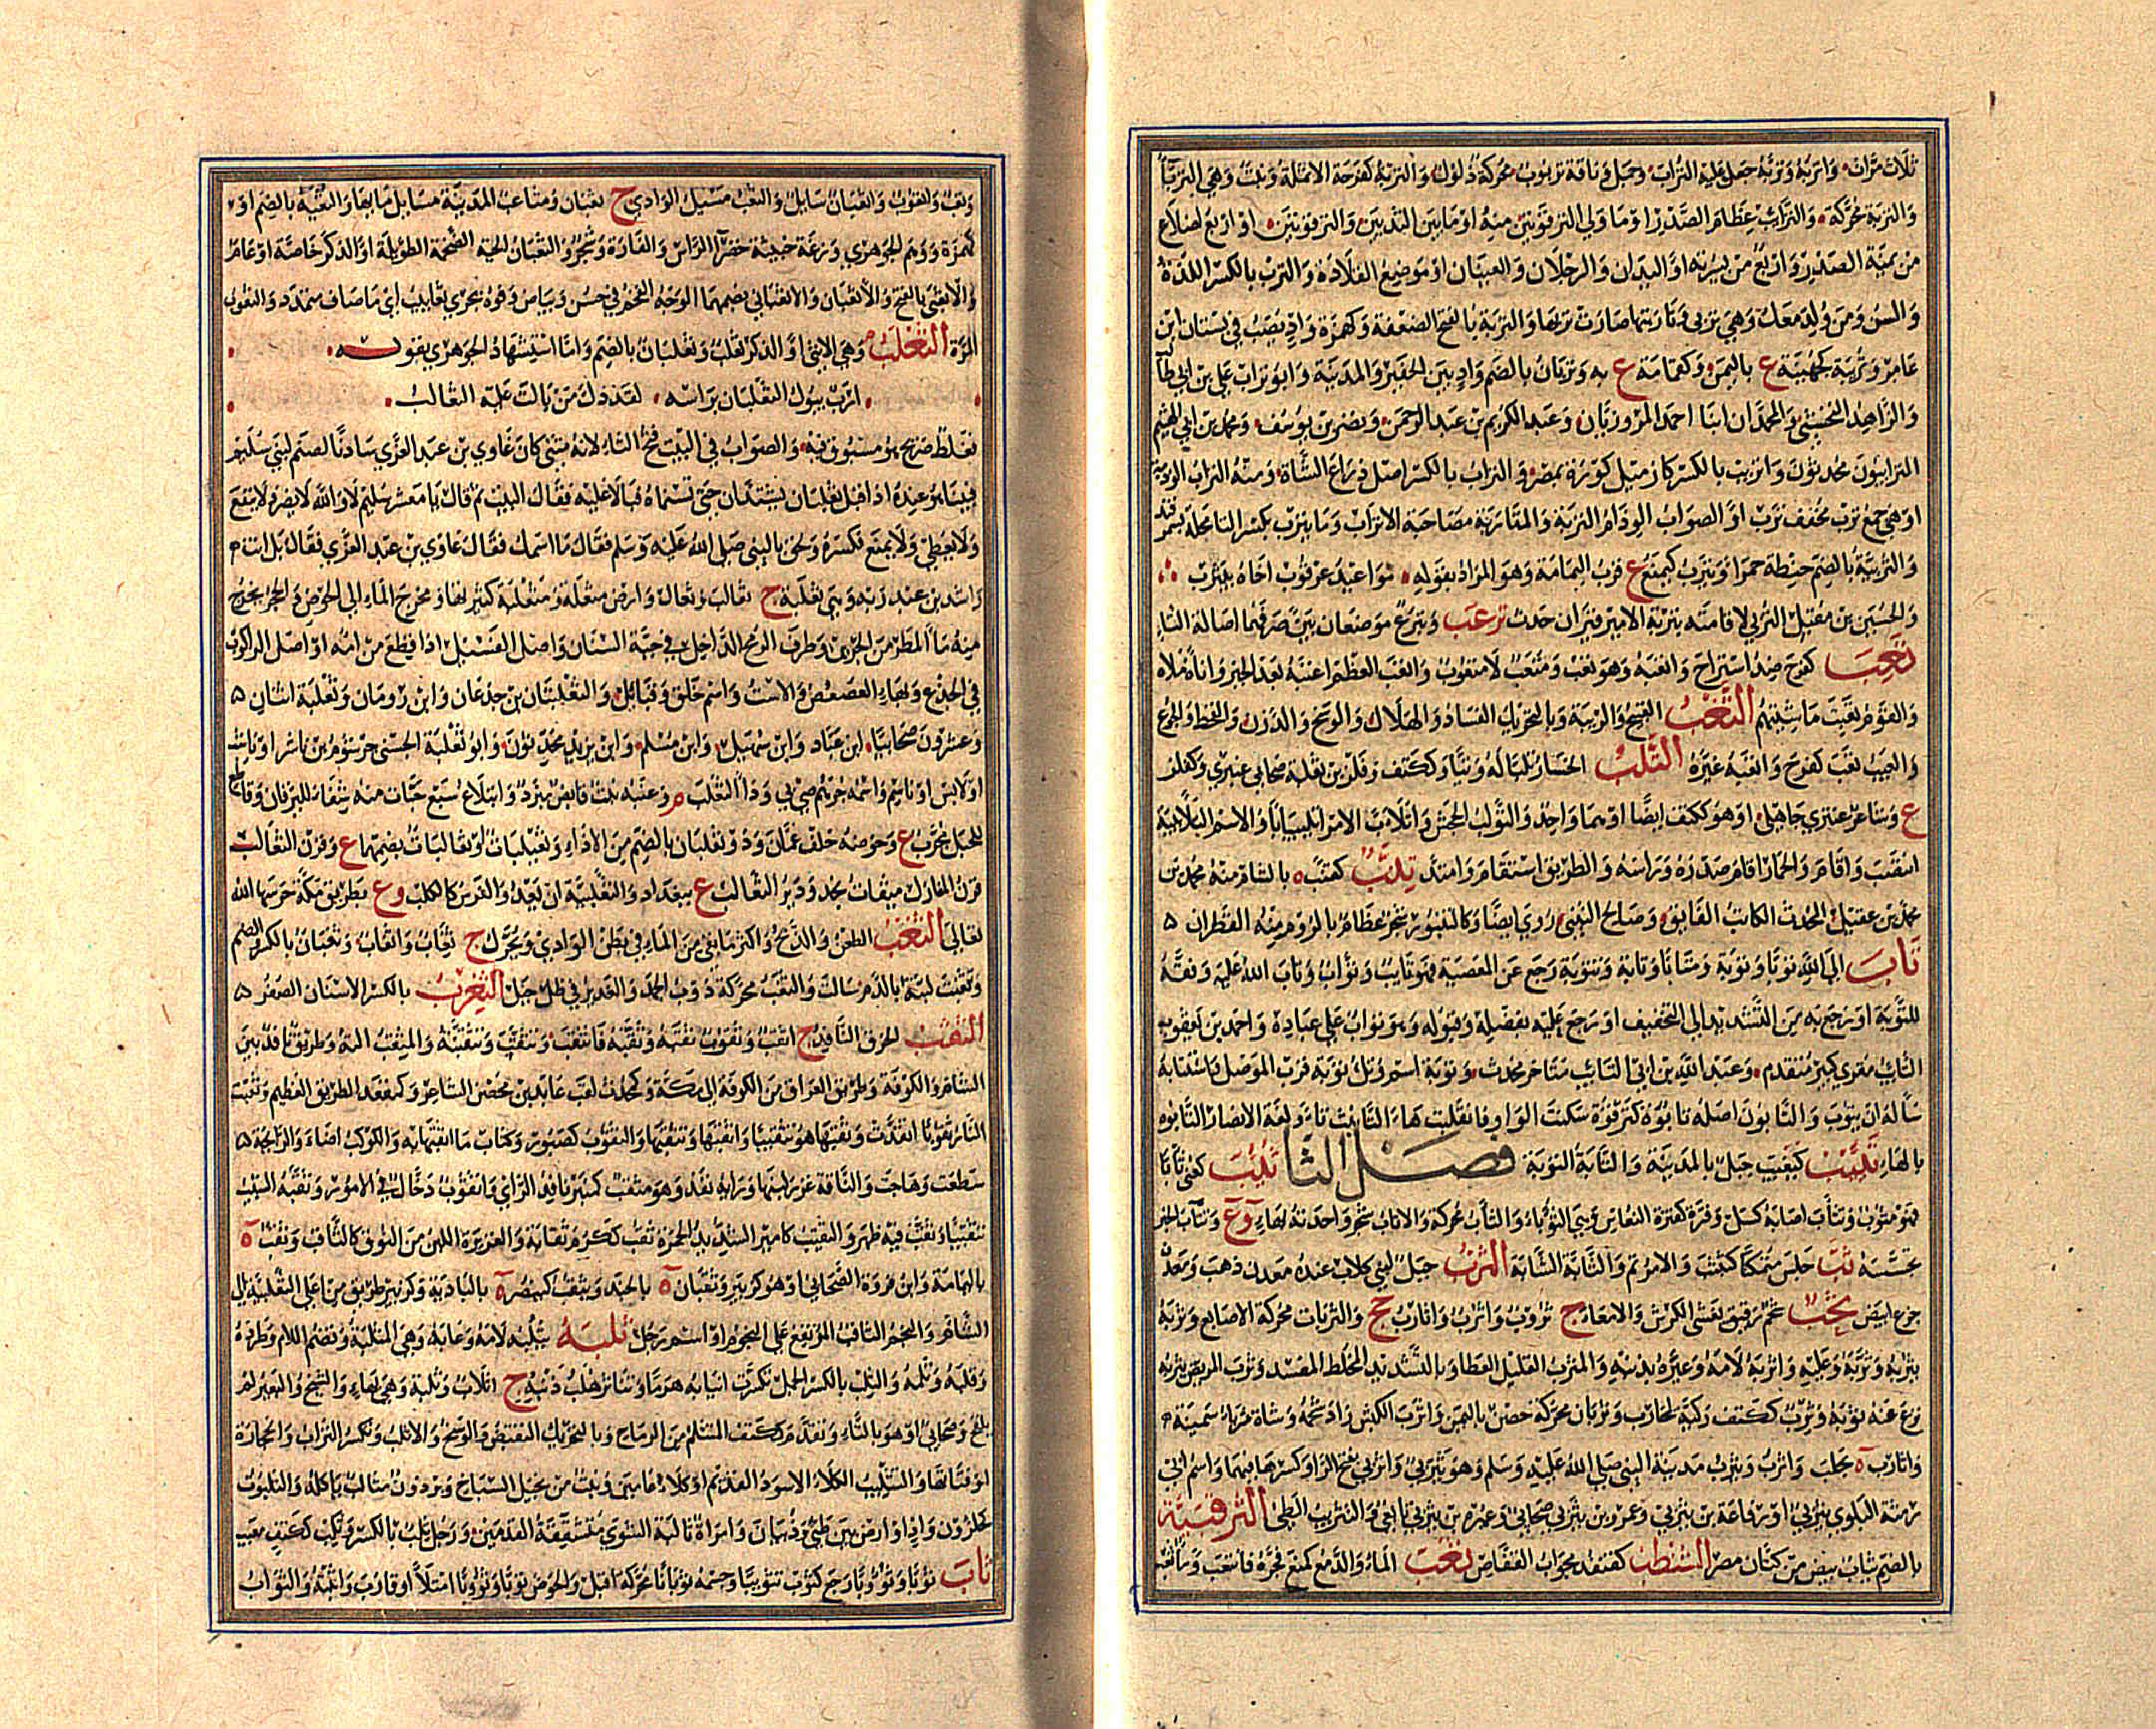 ثلاث مرات وأتربه وتربه جعل عليه التراب وجمل وناقة تربوت محركة ذلول والتربة كفرحة الأنملة ونبت وهي الترباء
والتربة محركة والترائب عظام الصدر أو ما ولي الترقوتين منه أو ما بين الثديين والترقوتين أو أربع أضلاع
من يمنة الصدر وأربع من يسرته أو اليدان والرجلان والعينان أو موضع القلادة والترب بالكسر اللدة
والسن ومن ولد معك وهي تربي وتاربتها صارت تربها والتربة بالفتح الضعفة وكهمزة واد يصب في بستان ابن
عامر وتربة كجهينة ع باليمن وكقمامة ع به وتربان بالضم واد بين الحفير والمدينة وأبو تراب علي بن أبي طالب
والزاهد النخشبي والمحمدان ابنا أحمد المروزيان وعبد الكريم بن عبد الرحمن ونصر بن يوسف ومحمد بن أبي الهيثم
الترابيون محدثون وأتريب بالكسر كازميل كورة بمصر والتراب بالكسر أصل ذراع الشاة ومنه التراب الوذمة
أو هي جمع ترب مخفف ترب أو الصواب الوذام التربة والمتاربة مصاحبة الأتراب وما يترب بكسر التاء محلة بسمرقند
والتربية بالضم حنطة حمراء ويترب كيمنع ع قرب اليمامة وهو المراد بقوله مواعيد عرقوب أخاه بيترب
والحسين بن مقبل التربي لإقامته بتربة الأمير قيزان حدث ترعب وتبرع موضعان بين صرفهما أصالة التاء
تعب كفرح ضد استراح وأتعبه وهو تعب ومتعب لا متعوب وأتعب العظم أعنته بعد الجبر وإناءه ملأه
والقوم تعبت ماشيتهم التغب القبيح والريبة وبالتحريك الفساد والهلاك والوسخ والدرن والقحط والجوع
والعيب تغب كفرح وأتغبه غيره التلب الخسار تلبا له وتبا وككتف وفلز بن ثعلبة صحابي عنبري وكفلز
ع وشاعر عنبري جاهلي أو هو ككتف أيضا أو هما واحد والتولب الجحش واتلأب الأمر اتلئبابا والاسم التلأبيبة
انتصب واقام والحمار اقام صدره ورأسه والطريق استقام وامتد تنب كقنب ه بالشام منه محمد بن
محمد بن عقيل المحدث الكاتب الفايق وصالح التنبي روي أيضا وكالتنبور شجر عظام بالروم منه القطران
تاب إلى الله توبا وتوبة ومتابا وتابة وتتوبة رجع عن المعصية فهو تايب وتواب وتاب الله عليه وفقه
للتوبة أو رجع به من التشديد إلى التخفيف أو رجع عليه بفضله وقبوله وهو تواب على عباده وأحمد بن يعقوب
التائب مقرئ كبير متقدم وعبد الله بن أبي التائب متأخر محدث وتوبة اسم وتل توبة قرب الموصل واستتابه
سأله أن يتوب والتابوت أصله تابوة كترقوة سكنت الواو فانقلبت هاء التأنيث تاء ولغة الأنصار التابوه
بالهاء تيبب كبيت جبل بالمدينة والتابة التوبة فصل الثا ثئب كعني ثأبا
فهو مثؤوب وتثأب أصابه كسل وفترة كفترة النعاس وهي الثؤباء والثأب محركة والأثأب شجر واحدته بهاء وع وتثأب الخبر
تحسسه ثب جلس متمكنا كثبثب والأمر تم والثابة الشابة الثرب جبل لبني كلاب عنده معدن ذهب ومعدن
جزع أبيض الثرب شحم رقيق يغشى الكرش والأمعاء ج ثروب وأثرب وأثارب جج والثربات محركة الأصابع وثربه
يثربه وثربه وعليه وأثربه لامه وعيره بذنبه والمثرب القليل العطاء وبالتشديد المخلط المفسد وثرب المريض يثربه
نزع عنه ثوبه وثرب ككتف ركية لمحارب وثربان محركة حصن باليمن وأثرب الكبش زاد شحمه وشاة ثرباء سمينة
وأثارب ه بحلب وأثرب ويثرب مدينة النبي صلى الله عليه وسلم وهو يثربي وأثربي بفتح الراء وكسرها فيهما واسم أبي
رمثة البلوي يثربي أو رفاعة بن يثربي وعمرو بن يثربي صحابي وعميرة بن يثربي تابعي والتثريب الطي الثرقبية
بالضم ثياب بيض من كتان مصر الثنطب كقنفذ مجواب القفاص ثعب الماء والدم كمنع فجره فانثعب وماء ثعب
وثعب وأثعوب وأثعبان سايل والثعب مسيل الوادي ج ثعبان ومثاعب المدينة مسايل مائها والثعبة بالضم أو
كهمزة ووهم الجوهري وزغة خبيثة خضراء الرأس والفارة وشجر والثعبان الحية الضخمة الطويلة أو الذكر خاصة أو عام
والأثعبي بالفتح والأثعبان والأثعباني بضمهما الوجه الفخم في حسن وبياض وفوه يجري ثعابيب أي ماء صاف متمدد والثعوب
المرة الثعلب م وهي الأنثى أو الذكر ثعلب وثعلبان بالضم وأما استشهاد الجوهري بقوله
أرب يبول الثعلبان برأسه لقد ذل من بالت عليه الثعالب
فغلط صريح وهو مسبوق فيه والصواب في البيت فتح الثاء لأنه مثنى كان غاوي بن عبد العزى سادنا لصنم لبني سليم
فبينا هو عنده إذ أقبل ثعلبان يشتدان حتى تسنماه فبالا عليه فقال البيت ثم قال يا معشر سليم لا والله لا يضر ولا ينفع
ولا يعطي ولا يمنع فكسره ولحق بالنبي صلى الله عليه وسلم فقال ما اسمك فقال غاوي بن عبد العزى فقال بل أنت
راشد بن عبد ربه وهي ثعلبة ج ثعالب وثعال وأرض مثعلة ومثعلبة كثيرتها ومخرج الماء إلى الحوض والجحر يخرج
منه ماء المطر من الجرين وطرف الرمح الداخل في جبة السنان وأصل الفسيل إذا قطع من أمه أو أصل الراكوب
في الجذع وبهاء العصعص والاست واسم خلق وقبائل والثعلبتان بن جدعان وابن رومان وثعلبة اثنان
وعشرون صحابيا ابن عباد وابن سهيل وابن مسلم وابن يزيد محدثون وأبو ثعلبة الخشني جرثوم بن ناشر أو ناشب
أو لابس أو ناشم واسمه جرهم صحابي وداء الثعلب م وعنبه نبت قابض مبرد وابتلاع سبع حبات منه شفاء لليرقان وقاطع
للحبل مجرب ع وحوضه خلف عمان وذو ثعلبان بالضم من الأذواء وثعيلبات أو ثعالبات بضمهما ع وقرن الثعالب
قرن المنازل ميقات نجد ودير الثعالب ع ببغداد والثعلبية أن يعدو الفرس كالكلب وع بطريق مكة حرسها الله
تعالى الثغب الطعن والذبح وأكثر ما بقي من الماء في بطن الوادي ويحرك ج ثغاب وأثغاب وثغبان بالكسر والضم
وتثغبت لثته بالدم سالت والثغب محركة ذوب الجمد والغدير في ظل جبل الثغرب بالكسر الأسنان الصفر
الثقب الخرق النافذ ج أثقب وثقوب ثقبه وثقبه فانثقب وتثقب وتثقبه والمثقب آلته وطريق نافذ بين
الشام والكوفة وطريق العراق من الكوفة إلى مكة وكمحدث لقب عايذ بن محصن الشاعر وكمقعد الطريق العظيم وثقبت
النار ثقوبا اتقدت وثقبها هو تثقيبا وأثقبها وتثقبها والثقوب كصبور وكتاب ما أثقبها به والكوكب أضاء والرائحة
سطعت وهاجت والناقة غزر لبنها ورأيه نفذ وهو مثقب كمنبر نافذ الرأي وأثقوب دخال في الأمور وثقبه الشيب
تثقيبا وثقب فيه ظهر والثقيب كأمير الشديد الحمرة ثقب ككرم ثقابة والغزيرة اللبن من النوق كالثاقب وثقب ه
باليمامة وابن فروة الصحابي أو هو كزبير وثقبان ه بالجند ويثقب كينصر ه بالبادية وكزبير طريق من أعلى الثعلبية إلى
الشام والنجم الثاقب المرتفع على النجوم أو اسم زحل ثلبه يثلبه لامه وعابه وهي المثلبة وتضم اللام وطرده
وقلبه وثلمه والثلب بالكسر الجمل تكسرت أنيابه هرما وتناثر هلب ذنبه ج أثلاب وثلبة وهي بهاء والشيخ والبعير لم
يلقح وصحابي أو هو بالتاء وتقدم وككتف المتثلم من الرماح وبالتحريك التقبض والوسخ والأثلب ويكسر التراب والحجارة
أو فتاتها والثليب الكلأ الأسود القديم أو كلأ عامين ونبت من نجيل السباخ وبرذون مثالب يأكله والثلبوت
كحلزون واد أو أرض بين طيئ وذبيان وامرأة ثالبة الشوى متشققة القدمين ورجل ثلب بالكسر وثلب ككتف معيب
ثاب ثوبا وثؤوبا رجع كثوب تثويبا وجسمه ثوبانا محركة أقبل والحوض ثوبا وثؤوبا امتلأ أو قارب وأثبته والثواب